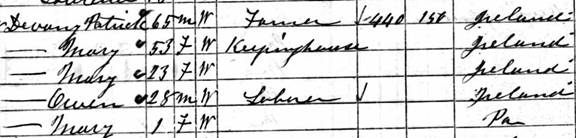 Devany Patrick 65 m W Farmer 440 150 Ireland
— Mary 53 F W Keeping house Ireland
— Mary 23 F W Ireland
— Owen 28 m W Laborer Ireland
— Mary 1 F W Pa